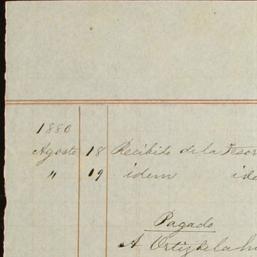 1880
Agosto 18 Recibido de la Tesor
" 19 idem ide
Pagado
A Ortiz